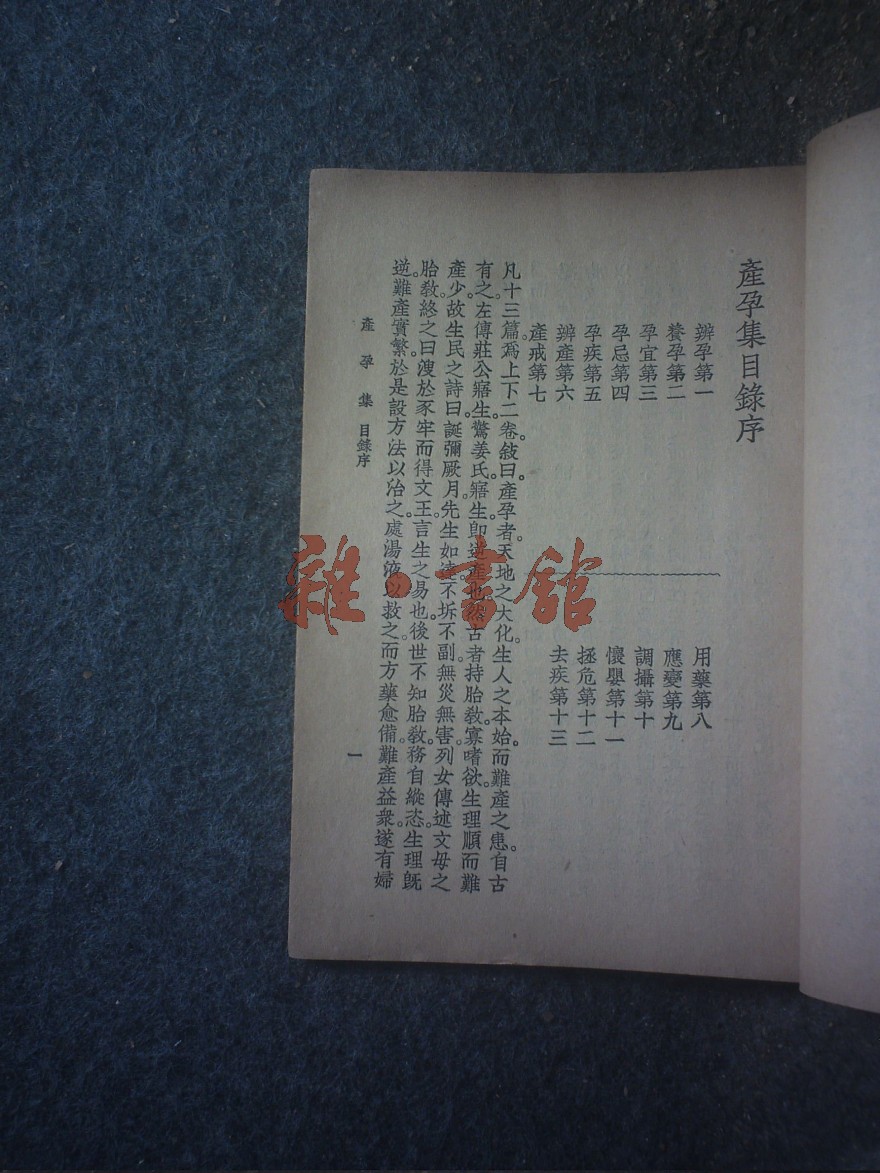 產孕集目錄序
辨孕第一
養孕第二
孕宜第三
孕忌第四
孕疾第五
辨產第六
產戒第七
用藥第八
應變第九
調攝第十
懷嬰第十一
拯危第十二
去疾第十三
凡十三篇爲上下二卷。敍曰。產孕者。天地之大化。生人之本始。而難產之患。自古
有之。左傳莊公寤生。驚姜氏。寤生卽逆產也。然古者持胎敎。寡嗜欲。生理順而難
產少。故生民之詩曰。誕彌厥月。先生如達。不坼不副。無災無害。列女傳述文母之
胎敎。終之曰。溲於豕牢而得文王。言生之易也。後世不知胎敎。務自縱恣。生理旣
逆。難產實繁。於是設方法以治之。處湯液以救之。而方藥愈備。難產益衆。遂有婦
產孕集 目錄序
一
雜·書館